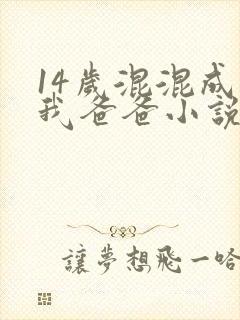 14歲混混成
我爸爸小說
讓夢想飛一哈